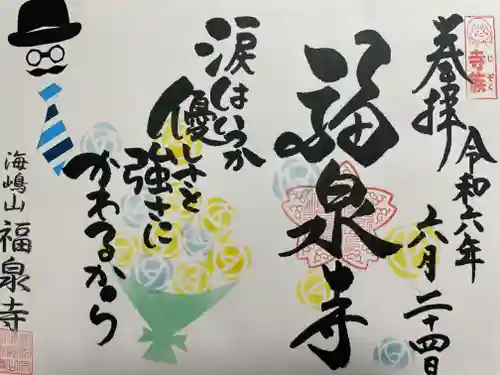 じぞく
寺族
奉拝
令和六年
六月二十四日
福泉寺
涙はいつか
優しさと
強さに
かわるから
海嶋山
福泉寺